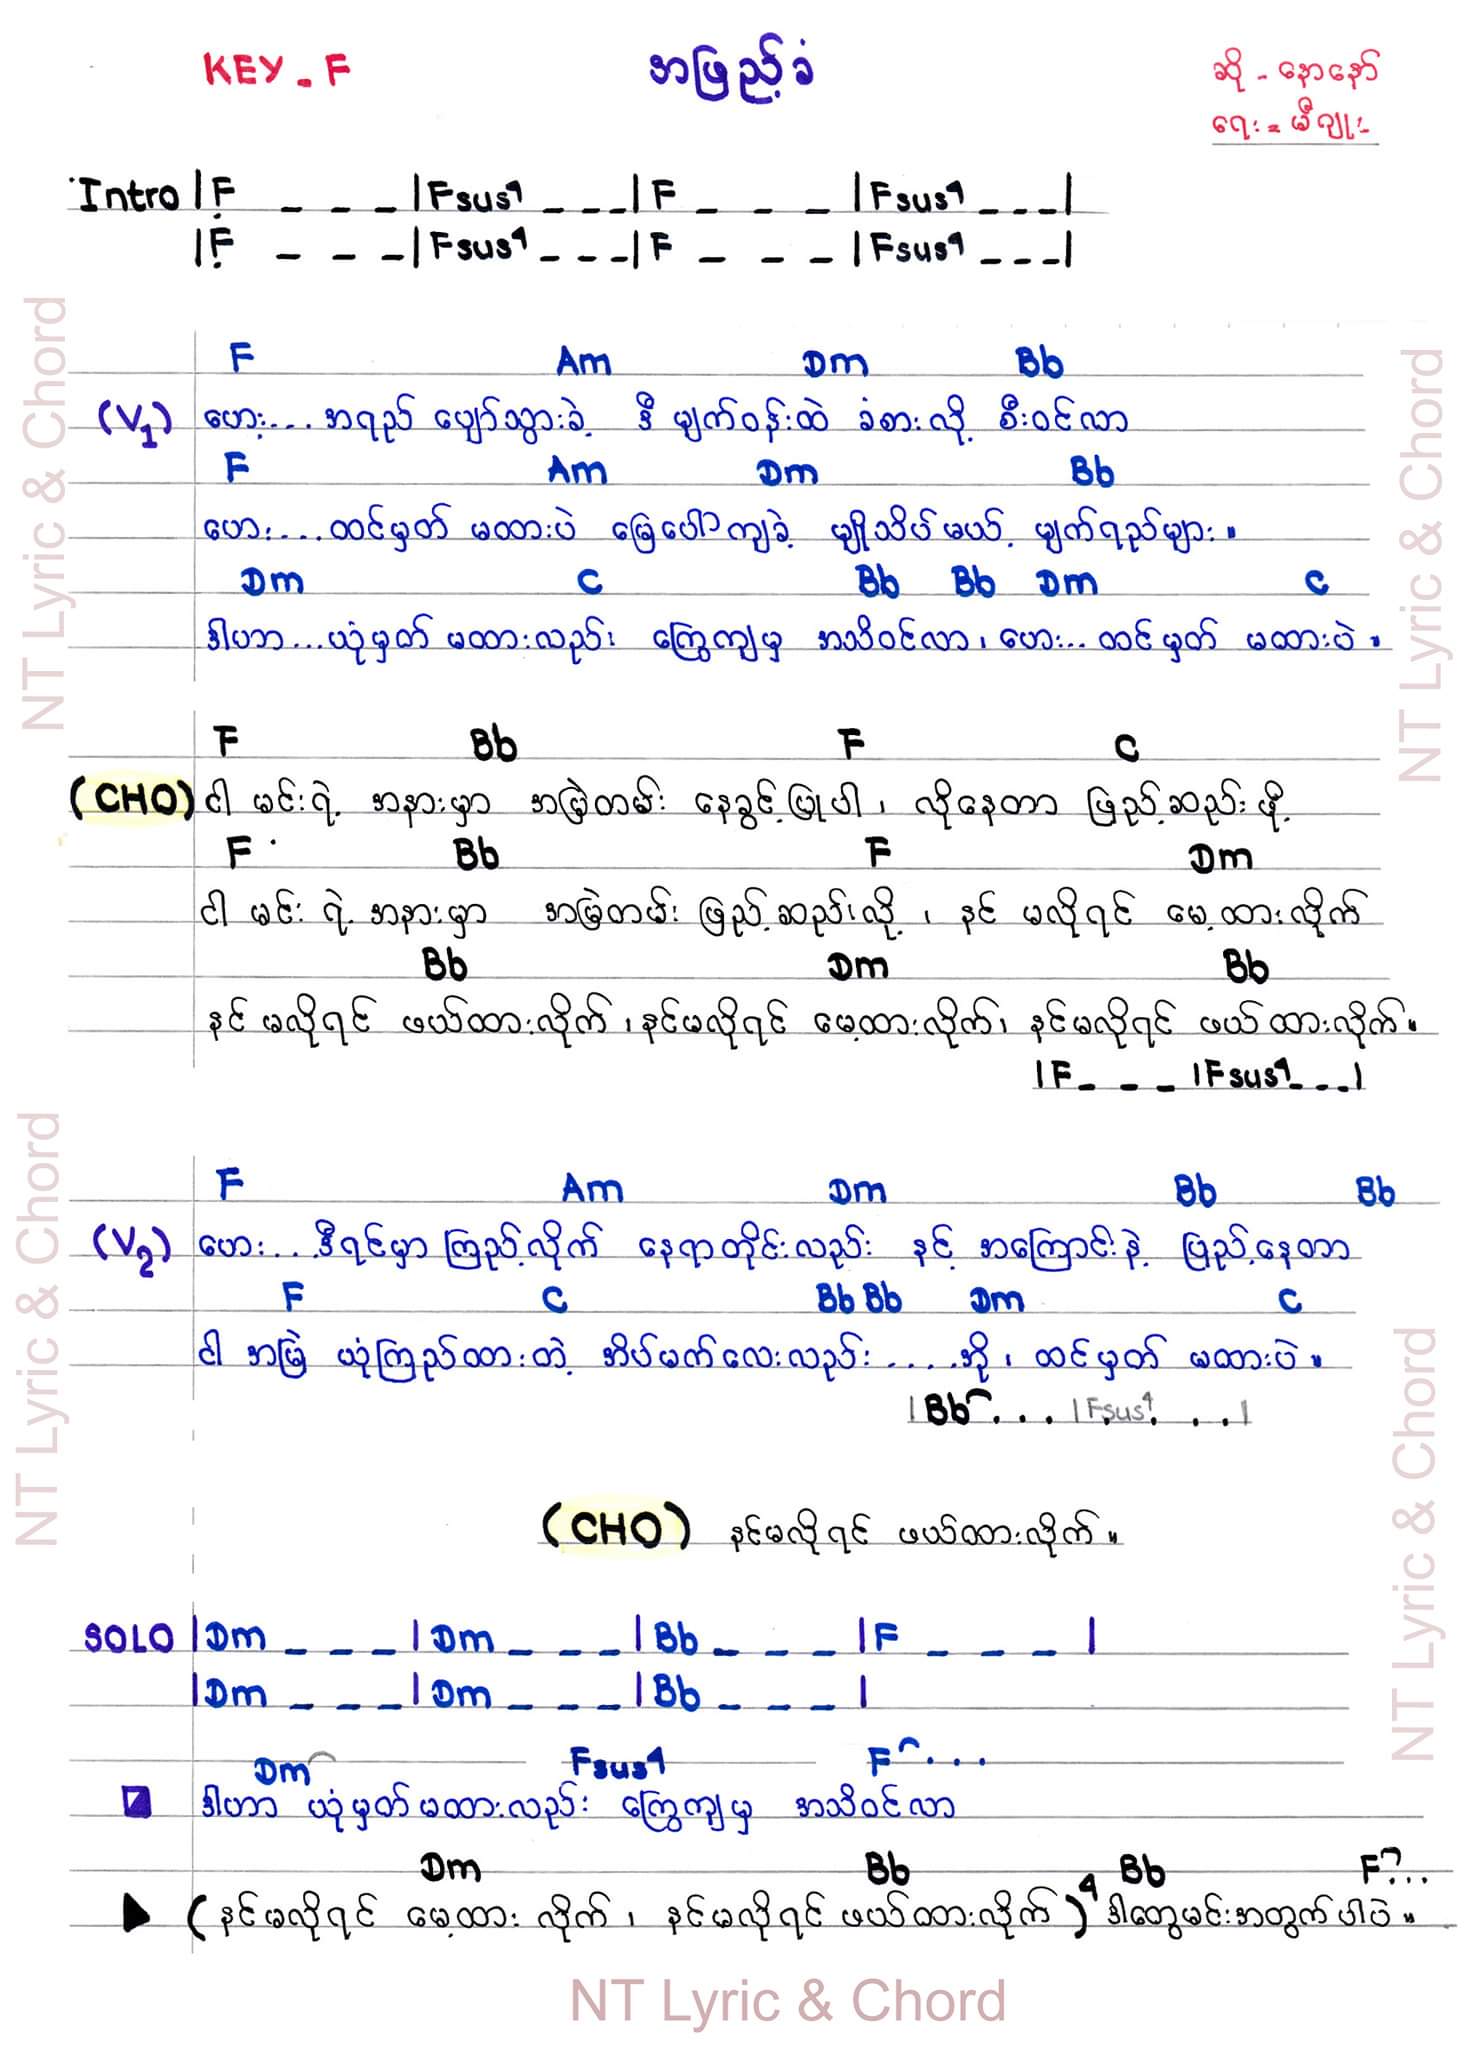 KEY - F
အဖြည့်ခံ
ဆို - နောနော်
ရေး = မီဂျူး
Intro |F _ _ _ |Fsus4 _ _ _| F _ _ _ |Fsus4 _ _ _|
|F _ _ _ |Fsus4 _ _ _| F _ _ _ |Fsus4 _ _ _|
F Am Dm Bb
(V1) ဟေ့း... အရည် ပျော်သွားခဲ့ ဒီ မျက်ဝန်းထဲ ခံစားလို့ စီးဝင်လာ
F Am Dm Bb
ဟေး... ထင်မှတ် မထားပဲ မြေပေါ်ကျခဲ့ မျှိုသိပ်မယ့် မျက်ရည်များ။
Dm C Bb Bb Dm C
ဒါဟာ...ယုံမှတ် မထားလည်း ကြွေကျမှ အသိဝင်လာ၊ ဟေး... ထင်မှတ် မထားပဲ။
F Bb F C
(CHO) ငါ မင်းရဲ့ အနားမှာ အမြဲတမ်း နေခွင့်ပြုပါ၊ လိုနေတာ ဖြည့်ဆည်းဖို့
F Bb F Dm
ငါ မင်း ရဲ့ အနားမှာ အမြဲတမ်း ဖြည့်ဆည်းလို့ ၊ နင် မလိုရင် မေ့ထားလိုက်
Bb Dm Bb
နင် မလိုရင် ဖယ်ထားလိုက် ၊ နင်မလိုရင် မေ့ထားလိုက်၊ နင်မလိုရင် ဖယ်ထားလိုက်။
|F _ _ _ |Fsus4 _ _ _|
F Am Dm Bb Bb
(V2) ဟေး... ဒီရင်မှာ ကြည့်လိုက် နေရာတိုင်းလည်း နင့် အကြောင်းနဲ့ ပြည့်နေတာ
F C Bb Bb Dm C
ငါ အမြဲ ယုံကြည်ထားတဲ့ အိပ်မက်လေးလည်း ....အို ၊ ထင်မှတ် မထားပဲ။
|Bb ... |Fsus4 ...|
(CHO) နင်မလိုရင် ဖယ်ထားလိုက်။
SOLO |Dm _ _ _ | Dm _ _ _ | Bb _ _ _ |F _ _ _ |
|Dm _ _ _ | Dm _ _ _ | Bb _ _ _ |
Dm Fsus4 F ...
ဒါဟာ ယုံမှတ်မထားလည်း ကြွေကျမှ အသိဝင်လာ
Dm Bb Bb F...
(နင်မလိုရင် မေ့ထား လိုက် ၊ နင်မလိုရင် ဖယ်ထားလိုက်)4 ဒါတွေမင်းအတွက်ပါပဲ။
NT Lyric & Chord
NT Lyric & Chord
NT Lyric & Chord
NT Lyric & Chord
NT Lyric & Chord